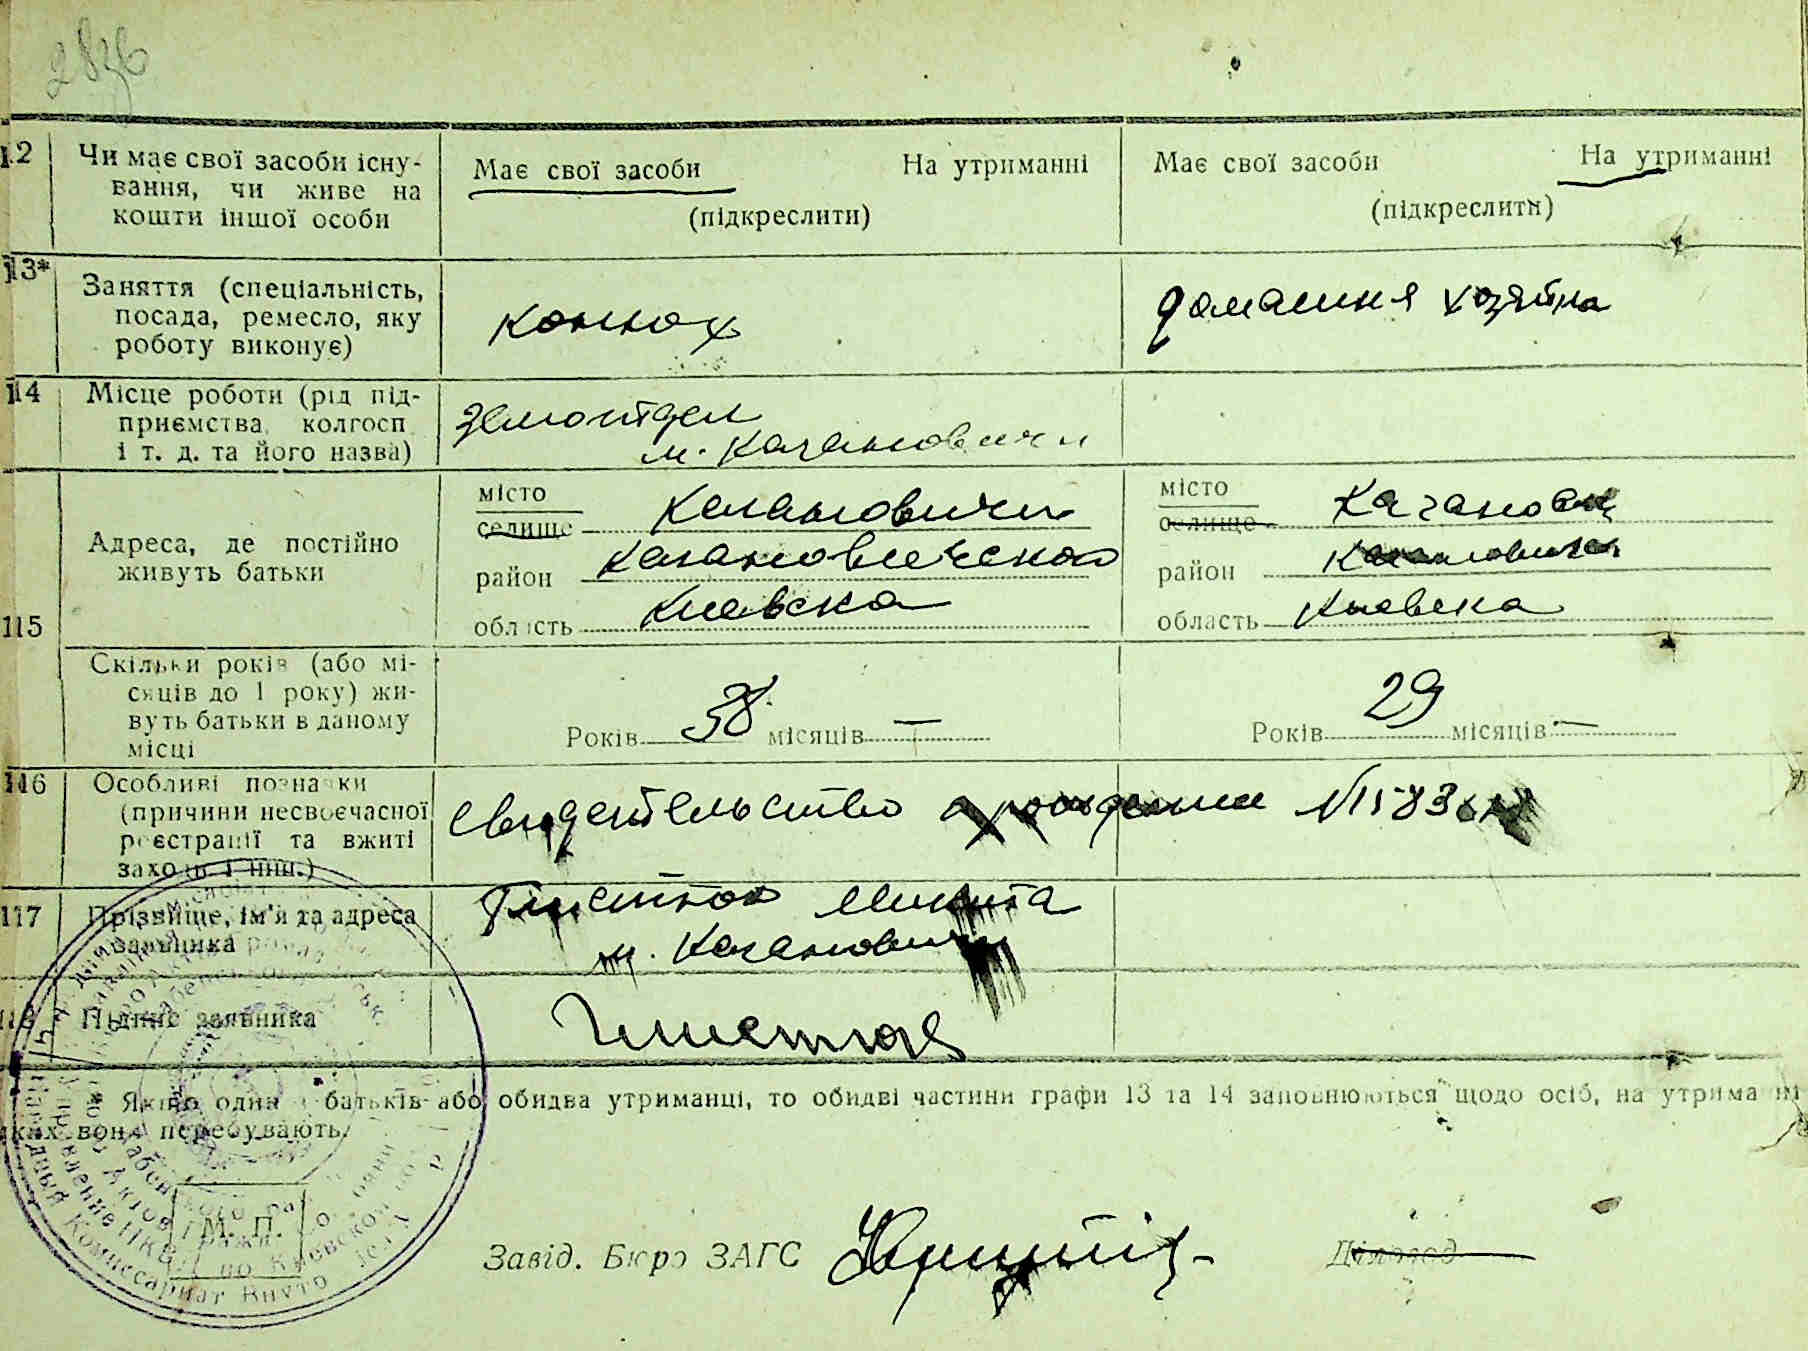 12 Чи має свої засоби існу-
вання, чи живе на
кошти іншої особи
Має свої засоби На утриманні
(підкреслити)
Має свої засоби На утриманні
(підкреслити)
13* Заняття (спеціальність,
посада, ремесло, яку
роботу виконує)
конюх
домашня хозяйка
14 Місце роботи (рід під-
приємства, колгосп
і т. д. та його назва)
земотдел
м. Кагановичи
115 Адреса, де постійно
живуть батьки
місто
селище Кагановичи
район Кагановический
область Киевска
місто
селище Каганович
район Каганович
область Киевска
Скільки років (або мі-
сяців до 1 року) жи-
вуть батьки в даному
місці
Років 38 місяців —
Років 29 місяців —
116 Особливі познаки
(причини несвоєчасної
реєстрації та вжиті
заходи і інш.)
свидетельство о рождении №
117 Прізвище, ім'я та адреса
заявника
Микита
м. Кагановичи
118 Підпис заявника
Якщо один з батьків або обидва утриманці, то обидві частини графи 13 та 14 заповнюються щодо осіб, на утриманні
яких вони перебувають.
М. П.
Завід. Бюро ЗАГС
Діловод